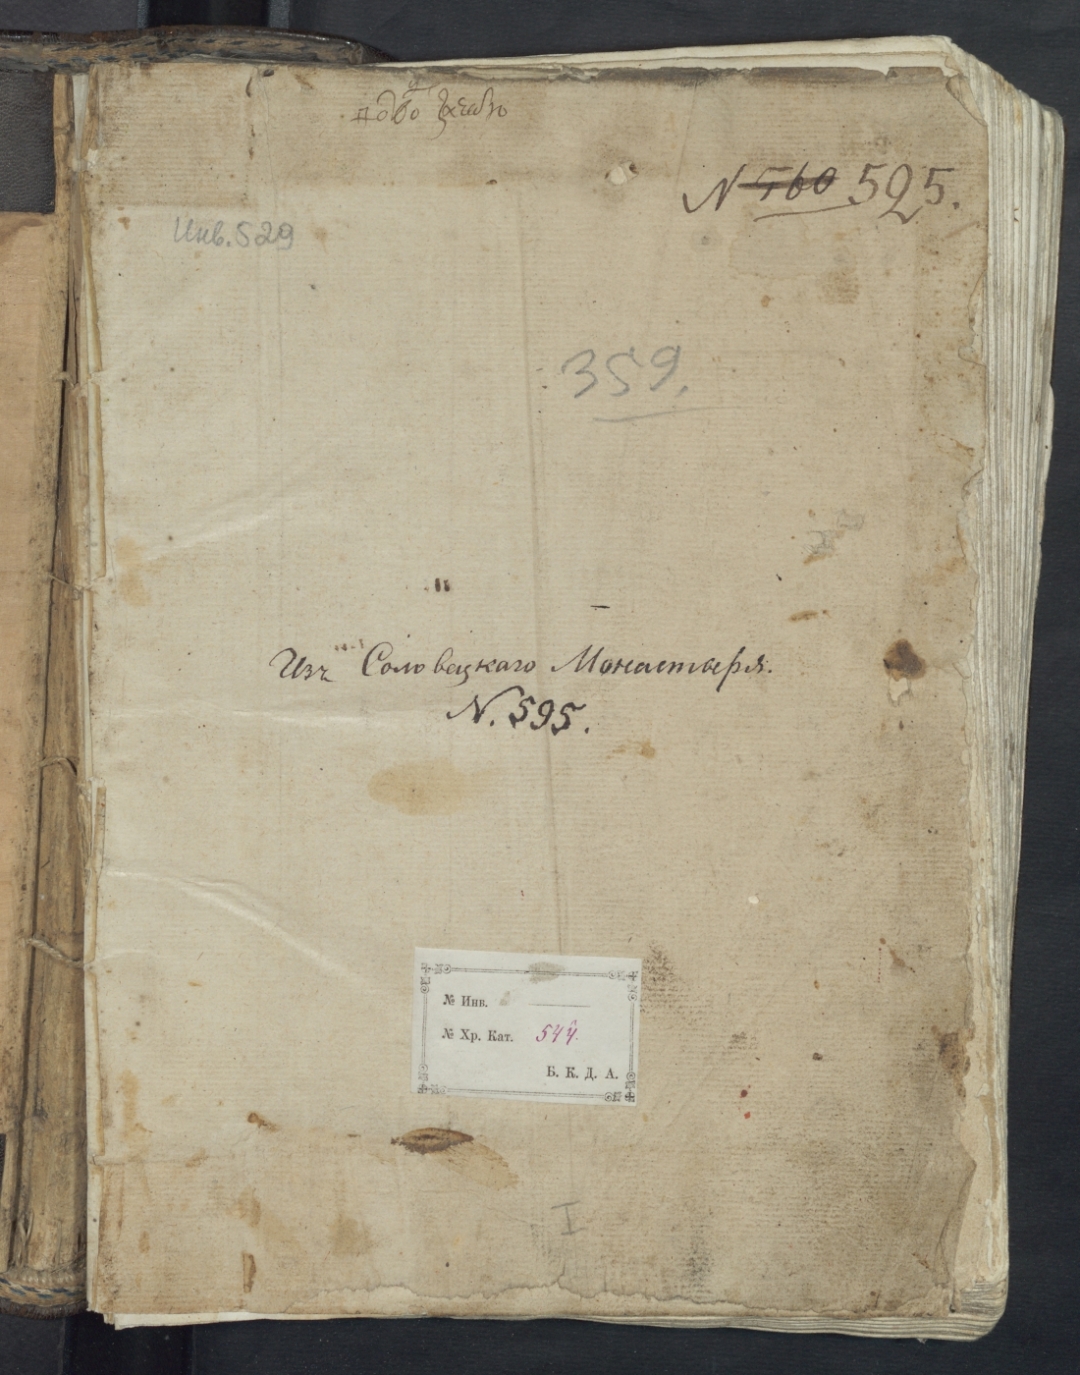 N 560 595.
Инв. 529
359.
Изъ Соловецкаго Монастыря.
N. 595.
№ Инв.
№ Хр. Кат. 544.
Б. К. Д. А.
I